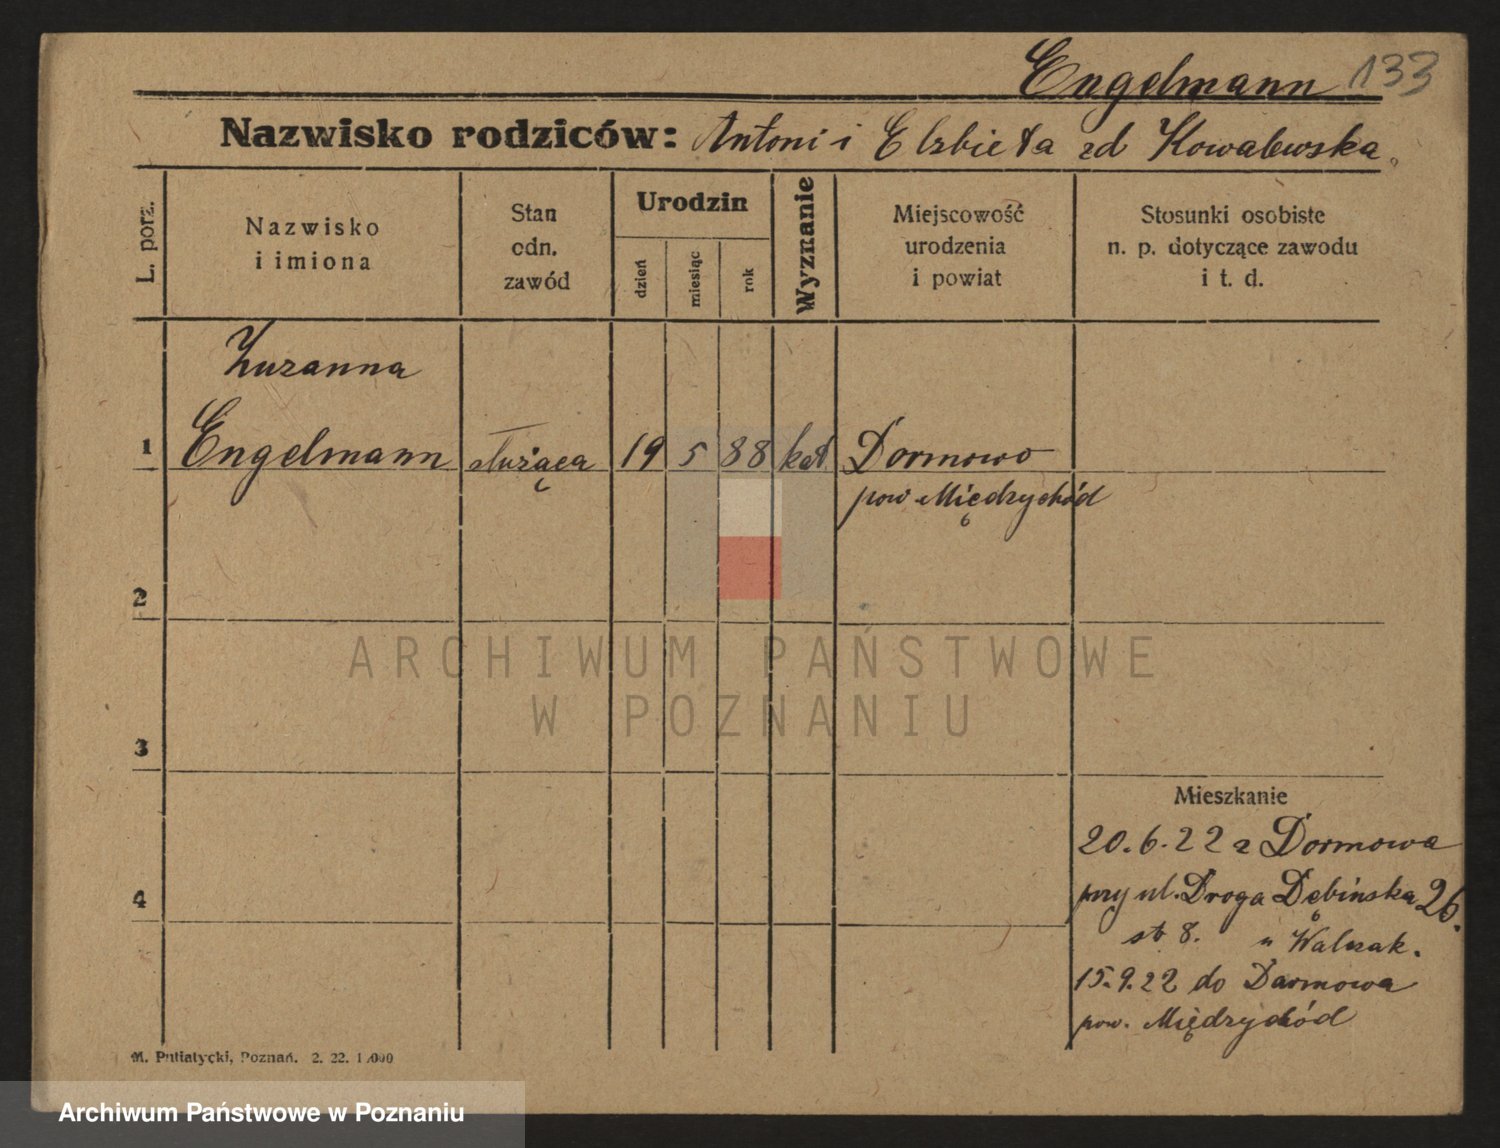 Engelmann 133
Nazwisko rodziców: Antoni i Elzbieta zd Kowalewska.
L. porz.
Nazwisko
i imiona
Stan
cdn.
zawód
Urodzin
dzień
miesiąc
rok
Wyznanie
Miejscowość
urodzenia
i powiat
Stosunki osobiste
n. p. dotyczące zawodu
i t. d.
Zuzanna
1 Engelmann służąca 19 5 88 kat Dormowo
pow Międzychód
2
ARCHIWUM PAŃSTWOWE
W POZNANIU
3
Mieszkanie
20.6.22 z Dormowa
4
przy ul. Droga Dębińska 26.
st 8. u Walczak.
15.9.22 do Darmowa
pow. Międzychód
M. Putiatycki, Poznań. 2. 22. 1.000
Archiwum Państwowe w Poznaniu